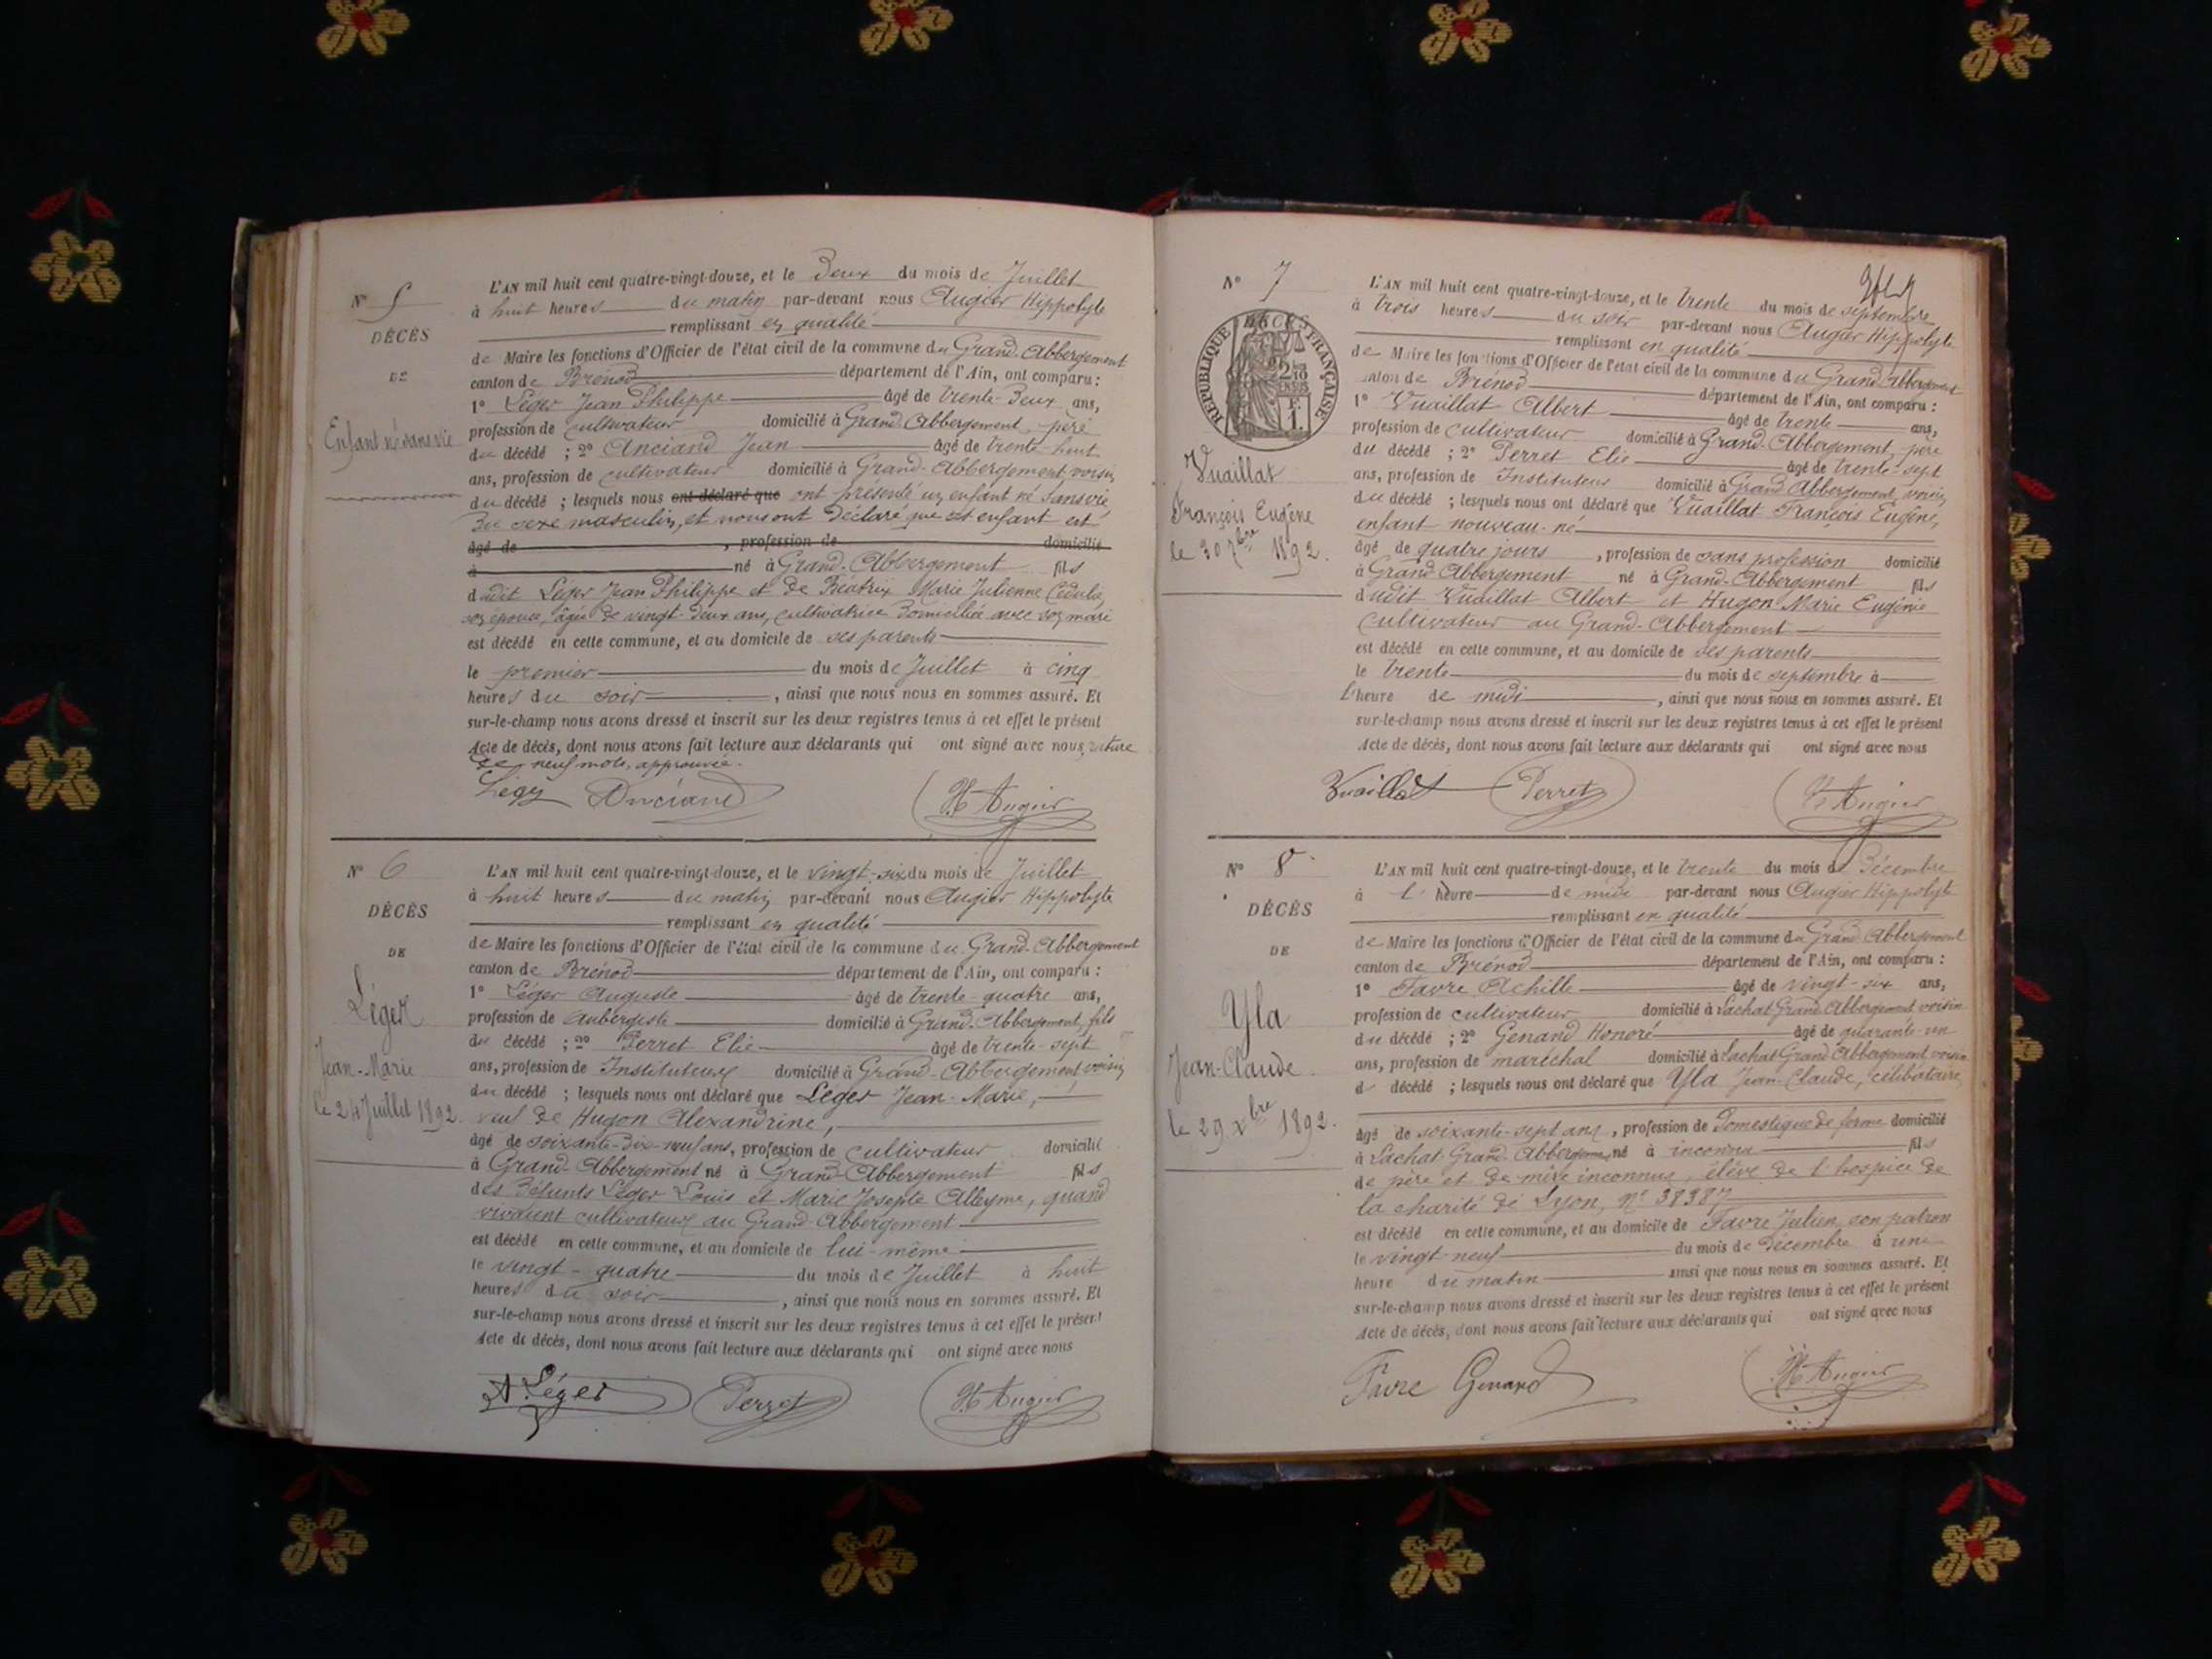 N° 5
DÉCÈS
DE
Enfant né sans vie
L'AN mil huit cent quatre-vingt-douze, et le deux du mois de Juillet
à huit heures du matin par-devant nous Augier Hippolyte
remplissant en qualité
de Maire les fonctions d'Officier de l'état civil de la commune du Grand-Abbergement
canton de Brénod département de l'Ain, ont comparu :
1° Léger Jean Philippe âgé de trente-deux ans,
profession de cultivateur domicilié à Grand-Abbergement, père
du décédé ; 2° Anciand Jean âgé de trente-huit
ans, profession de cultivateur domicilié à Grand-Abbergement, voisin
du décédé ; lesquels nous ont déclaré que ont présenté un enfant né sans vie,
du sexe masculin, et nous ont déclaré que cet enfant est
âgé de , profession de domicilié
à né à Grand-Abbergement fils
dudit Léger Jean Philippe et de Béatrix Marie Julienne
son épouse, âgée de vingt-deux ans, cultivatrice domiciliée avec son mari
est décédé en cette commune, et au domicile de ses parents
le premier du mois de Juillet à cinq
heures du soir , ainsi que nous nous en sommes assuré. Et
sur-le-champ nous avons dressé et inscrit sur les deux registres tenus à cet effet le présent
Acte de décès, dont nous avons fait lecture aux déclarants qui ont signé avec nous, rature
de neuf mots, approuvée.
Légr Anciand H. Augier
N° 6
DÉCÈS
DE
Léger
Jean-Marie
le 24 Juillet 1892.
L'AN mil huit cent quatre-vingt-douze, et le vingt-six du mois de Juillet
à huit heures du matin par-devant nous Augier Hippolyte
remplissant en qualité
de Maire les fonctions d'Officier de l'état civil de la commune du Grand-Abbergement
canton de Brénod département de l'Ain, ont comparu :
1° Léger Auguste âgé de trente-quatre ans,
profession de Aubergiste domicilié à Grand-Abbergement, fils
du décédé ; 2° Perret Elie âgé de trente-sept
ans, profession de Instituteur domicilié à Grand-Abbergement, voisin
du décédé ; lesquels nous ont déclaré que Léger Jean-Marie,
veuf de Hugon Alexandrine,
âgé de soixante-dix-neuf ans, profession de cultivateur domicilié
à Grand-Abbergement né à Grand-Abbergement fils
des défunts Léger Louis et Marie Josepte Alleyme, quand
vivaient cultivateurs au Grand-Abbergement
est décédé en cette commune, et au domicile de lui-même
le vingt-quatre du mois de Juillet à huit
heures du soir , ainsi que nous nous en sommes assuré. Et
sur-le-champ nous avons dressé et inscrit sur les deux registres tenus à cet effet le présent
Acte de décès, dont nous avons fait lecture aux déclarants qui ont signé avec nous
A. Léger Perret H. Augier
N° 7
DÉCÈS
RÉPUBLIQUE FRANÇAISE
Vuaillat
François Eugène
le 30 7bre 1892.
L'AN mil huit cent quatre-vingt-douze, et le trente du mois de septembre
à trois heures du soir par-devant nous Augier Hippolyte
remplissant en qualité
de Maire les fonctions d'Officier de l'état civil de la commune du Grand-Abbergement
canton de Brénod département de l'Ain, ont comparu :
1° Vuaillat Albert âgé de trente ans,
profession de cultivateur domicilié à Grand-Abbergement, père
du décédé ; 2° Perret Elie âgé de trente-sept
ans, profession de Instituteur domicilié à Grand Abbergement, voisin
du décédé ; lesquels nous ont déclaré que Vuaillat François Eugène,
enfant nouveau-né
âgé de quatre jours , profession de sans profession domicilié
à Grand-Abbergement né à Grand-Abbergement fils
dudit Vuaillat Albert et Hugon Marie Eugénie
cultivateurs au Grand-Abbergement
est décédé en cette commune, et au domicile de ses parents
le trente du mois de septembre à
l'heure de midi , ainsi que nous nous en sommes assuré. Et
sur-le-champ nous avons dressé et inscrit sur les deux registres tenus à cet effet le présent
Acte de décès, dont nous avons fait lecture aux déclarants qui ont signé avec nous
Vuaillat Perret H. Augier
N° 8
DÉCÈS
DE
Yla
Jean-Claude
le 29 Xbre 1892.
L'AN mil huit cent quatre-vingt-douze, et le trente du mois de Décembre
à l' heure de midi par-devant nous Augier Hippolyte
remplissant en qualité
de Maire les fonctions d'Officier de l'état civil de la commune du Grand Abbergement
canton de Brénod département de l'Ain, ont comparu :
1° Favre Achille âgé de vingt-six ans,
profession de cultivateur domicilié à Lachat Grand Abbergement voisin
du décédé ; 2° Genand Honoré âgé de quarante-un
ans, profession de maréchal domicilié à Lachat Grand Abbergement, voisin
d décédé ; lesquels nous ont déclaré que Yla Jean-Claude, célibataire
âgé de soixante-sept ans , profession de Domestique de ferme domicilié
à Lachat Grand Abbergement né à inconnu fils
de père et de mère inconnus, élève de l'hospice de
la charité de Lyon, N° 38387
est décédé en cette commune, et au domicile de Favre Julien, son patron
le vingt-neuf du mois de Décembre à une
heure du matin ainsi que nous nous en sommes assuré. Et
sur-le-champ nous avons dressé et inscrit sur les deux registres tenus à cet effet le présent
Acte de décès, dont nous avons fait lecture aux déclarants qui ont signé avec nous
Favre Genand H. Augier